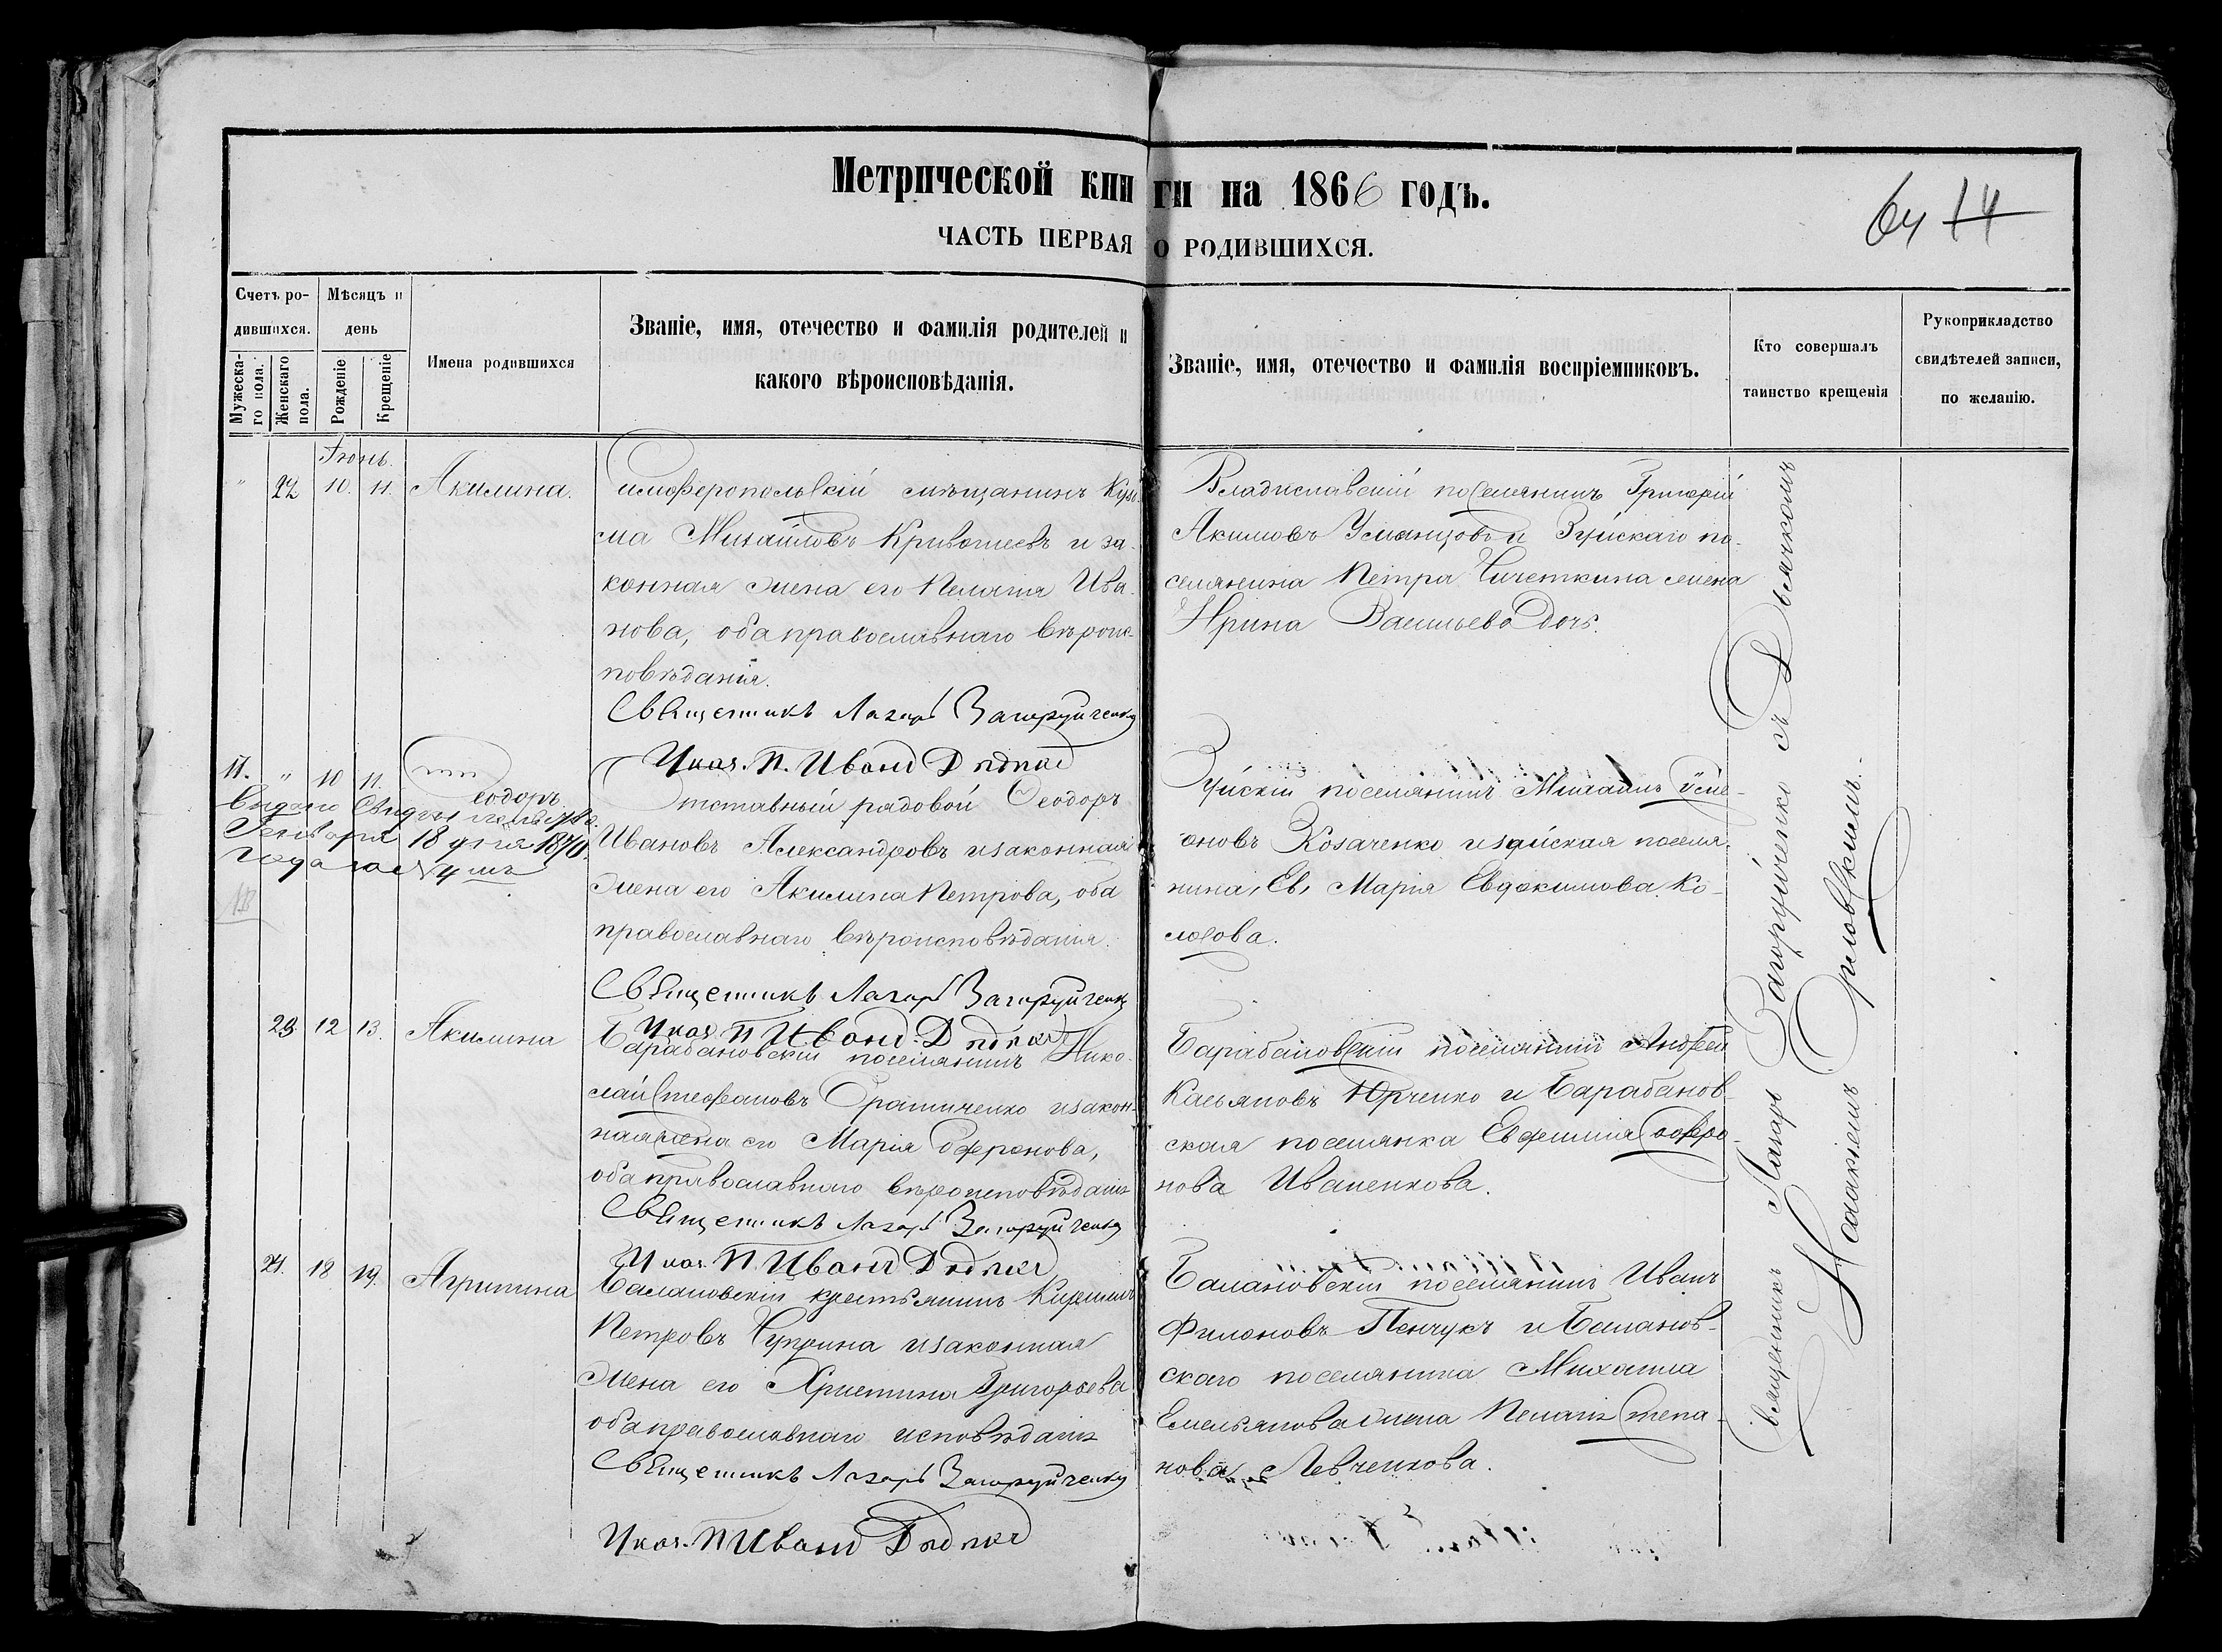 Метрической книги на 1866 годъ.
64 14
ЧАСТЬ ПЕРВАЯ О РОДИВШИХСЯ.
Счетъ ро-
дившихся.
Мужеска-
го пола.
Женскаго
пола.
Мѣсяцъ и
день
Рожденіе
Крещеніе
Имена родившихся
Званіе, имя, отечество и фамилія родителей и
какого вѣроисповѣданія.
Званіе, имя, отечество и фамилія воспріемниковъ.
Кто совершалъ
таинство крещенія
Рукоприкладство
свидѣтелей записи,
по желанію.
Іюнь.
" 22 10. 11. Акилина.
Симферопольскій мѣщанинъ Кузь-
ма Михайловъ Кривошеевъ и за-
конная жена его Пелагія Ива-
нова, оба православнаго вѣроис-
повѣданія.
Священникъ Лазарь Загоруйченко
Указ. П. Иванъ Дядькѡ
Владиславскій поселянинъ Григорій
Акимовъ Усманцовъ и Зуйскаго по-
селянина Петра Чичеткина жена
Ирина Васильева Дочь.
17. " 10 11. Ѳеодоръ.
Видано Свидетельство
Генваря 18 дня 1870
года за № 4 мъ
Отставный рядовой Ѳеодоръ
Ивановъ Александровъ и законная
жена его Акилина Петрова, оба
православнаго вѣроисповѣданія.
Священникъ Лазарь Загоруйченко
Указ. П. Иванъ Дядькѡ
Зуйскій поселянинъ Михаилъ Симе-
оновъ Козаченко и зуйская поселя-
нина, Марія Евдокимова Ко-
лосова.
23. 12 13. Акилина
Барабановскій поселянинъ Нико-
лай Стефановъ и закон-
ная жена его Марія Софронова,
оба православнаго вѣроисповѣданія
Священникъ Лазарь Загоруйченко
Указ. П. Иванъ Дядькѡ
Барабановскій поселянинъ Андрей
Касьяновъ Юрченко и Барабанов-
ская поселянка Евфимія Софро-
нова Иваненкова.
24. 18 19. Агрипина
Балановскій крестьянинъ Кириллъ
Петровъ Чуприна и законная
жена его Христина Григорьева
оба православнаго исповѣданія
Священникъ Лазарь Загоруйченко
Указ. П. Иванъ Дядькѡ
Балановскій поселянинъ Иванъ
Филоновъ Пенчукъ и Баланов-
скаго поселянина Михаила
Емельянова жена Пелагія Степа-
нова Левченкова.
Священникъ Лазарь Загоруйченко съ Дьячкомъ
Іоакимъ Орловскимъ.